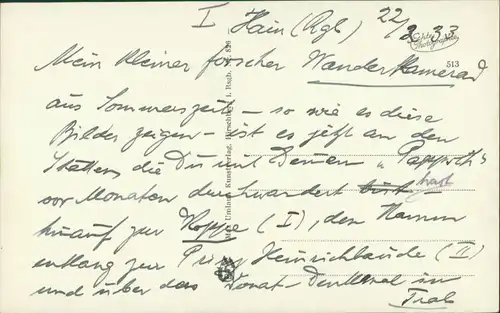 I Hain (Rgb) 22/3 33
Mein kleiner forscher Wanderkamerad
513
aus Sommerszeit – so wie es diese
Bilder zeigen – ist es jetzt an den
Stätten, die Du mit Deinem
vor Monaten durchwandert hast
hinauf zur (I), den Kamm
entlang zur Prinz Heinrichbaude (II)
und über das Donat-Denkmal in
Max Umlauf, Kunstverlag, Hirschberg i. Rsgb.